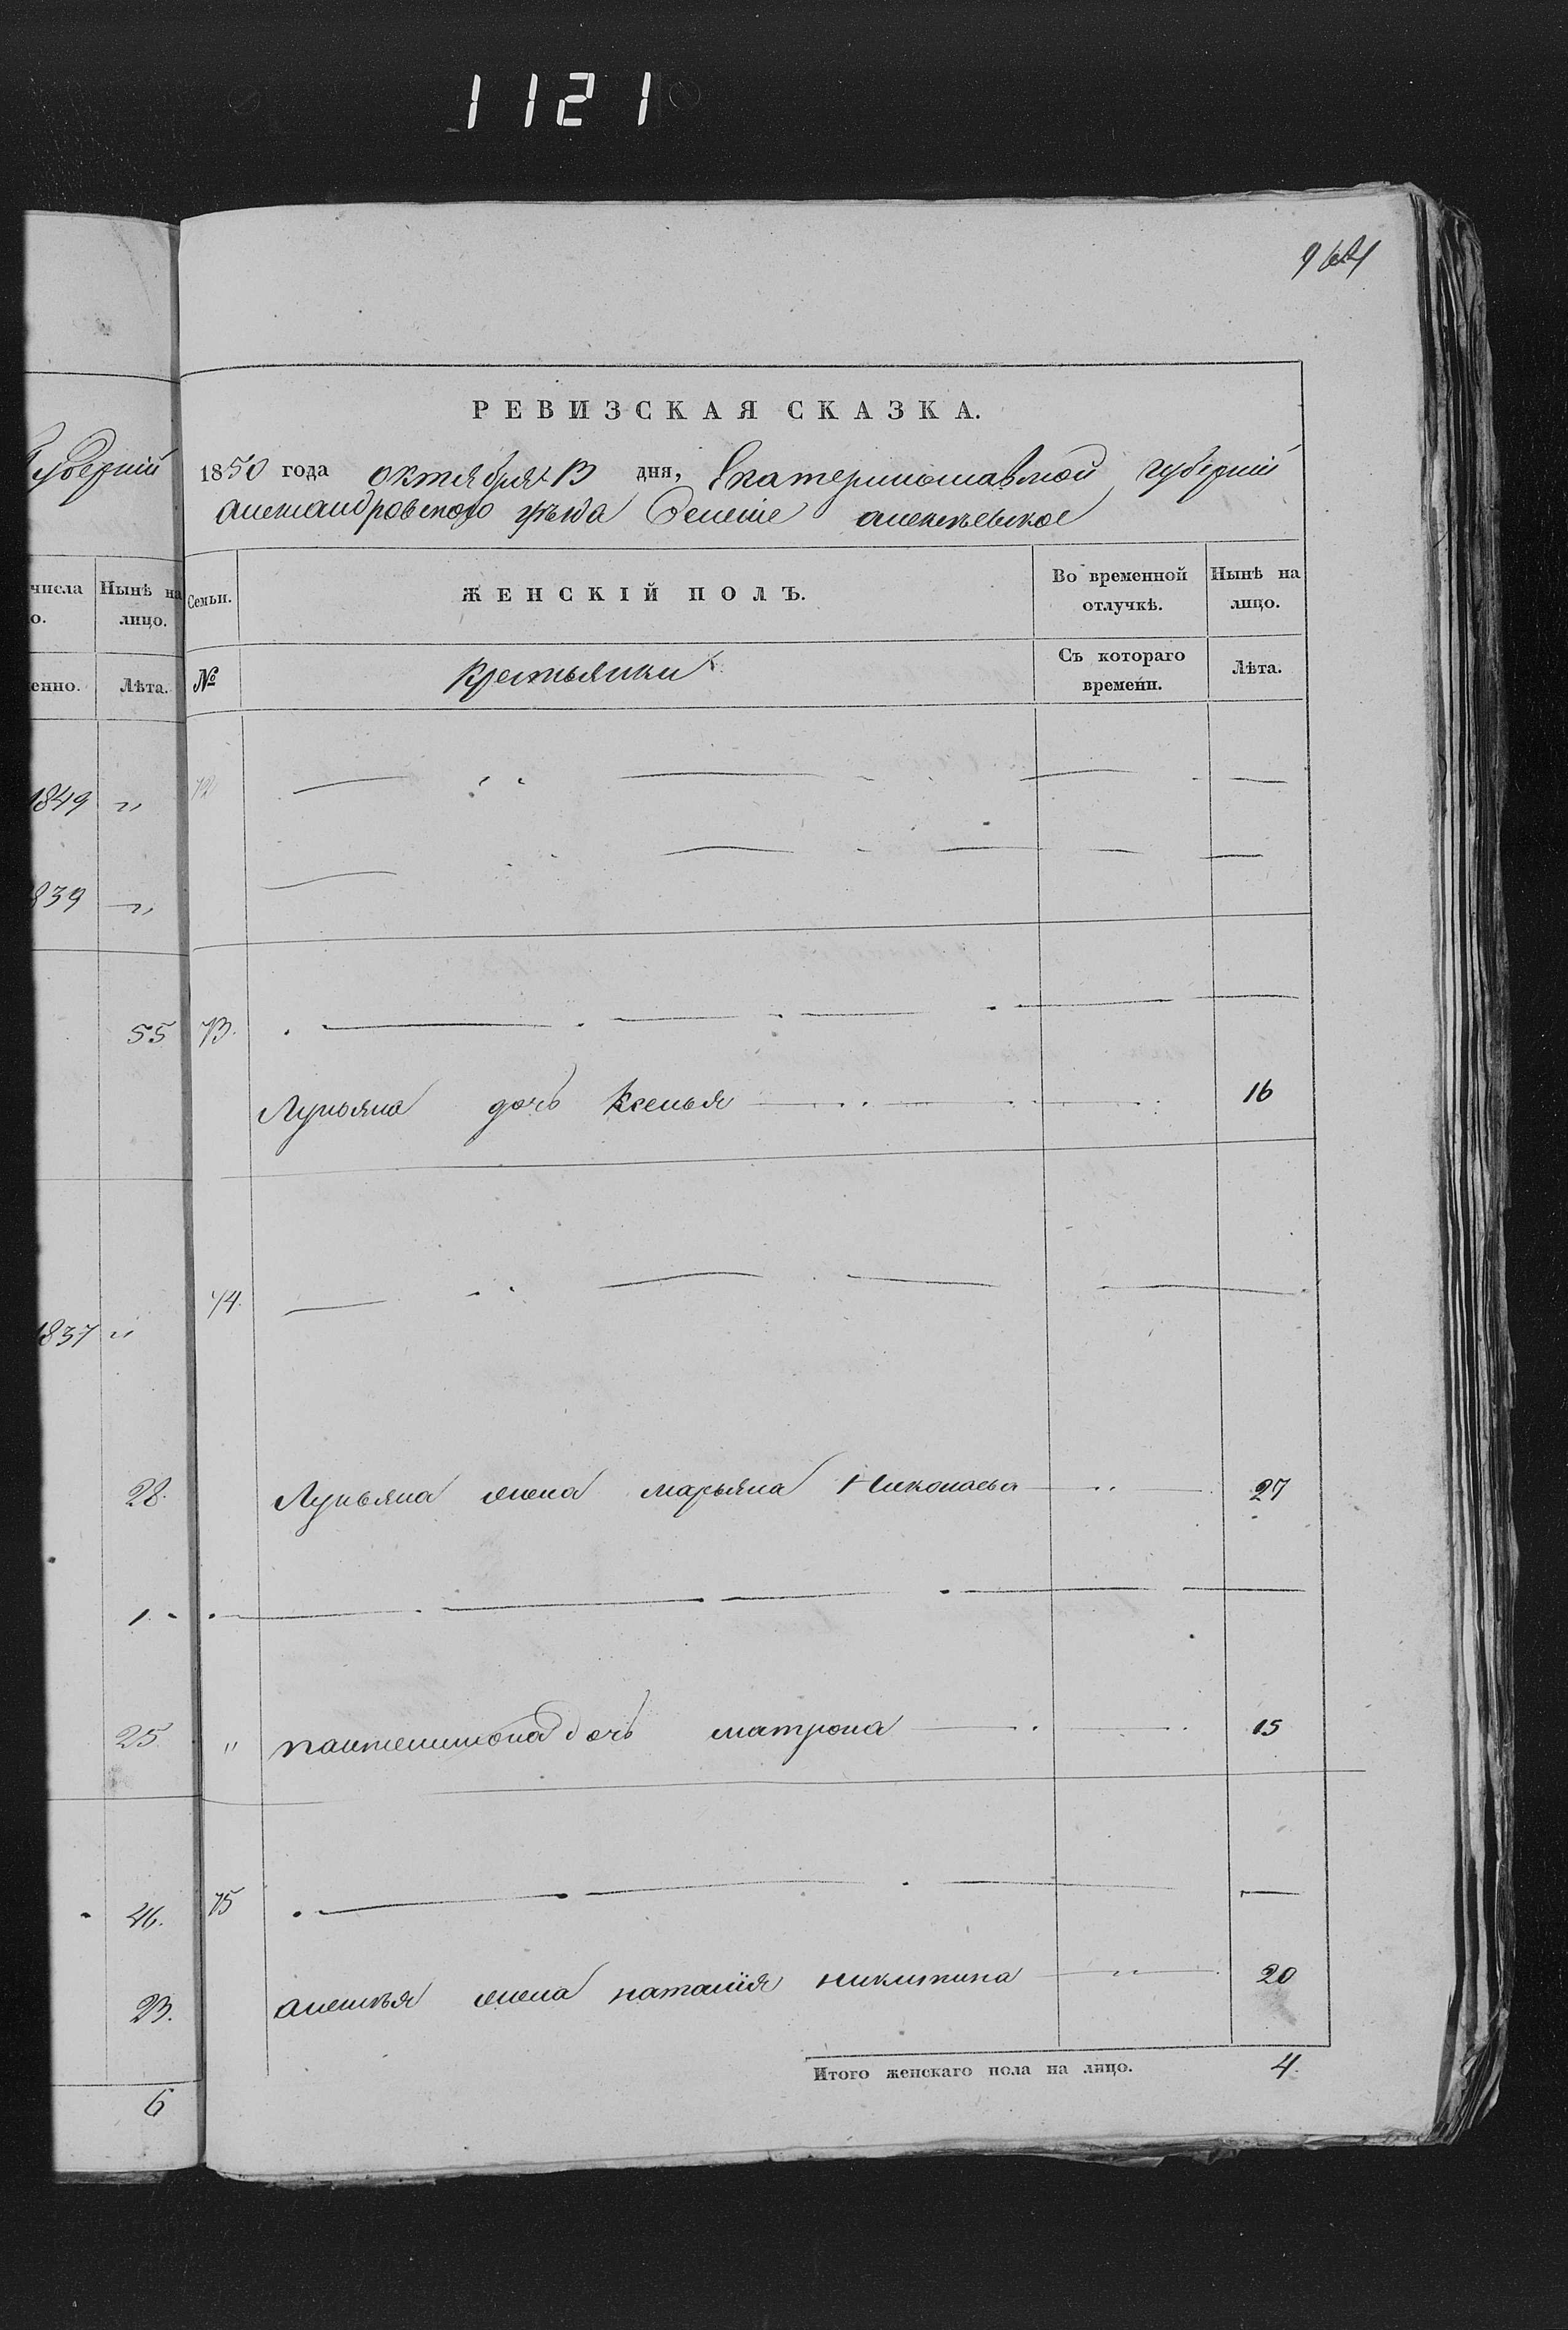 1121
губерній
числа
о.
Нынѣ на
лицо.
енно.
Лѣта.
1849 "
839 "
55
1837 "
28.
1.
25
46.
23.
6
РЕВИЗСКАЯ СКАЗКА.
1850 года октября 13 дня, Екатеринославской губерній
александровского уѣзда Селеніе алексѣевское
Семьи.
ЖЕНСКІЙ ПОЛЪ.
Во временной
отлучкѣ.
Нынѣ на
лицо.
№
крестьянки
Съ котораго
времени.
Лѣта.
72
73.
Лукьяна дочь Ксенья 16
74.
Лукьяна жена марьяна Николаева 27
" пантелимона дочь матрона 15
75
алексѣя жена наталія никитина 20
Итого женскаго пола на лицо. 4.